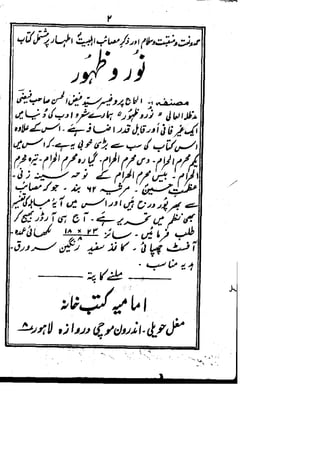 ۲
حمد و نعت و منقبت و سلام اور ذکر مصائب اہلبیتؑ و اظہار پر مشتمل کتاب
نور و ظہور
مصنفہ :۔ الحاج پروفیسر سید فیض الحسن صاحب فیضی
مدظلہ العالی " نور و ظہور " ہمارے شعر و ادب کی دنیا میں
ایک غیر فانی اور قابل قدر اضافہ ہے۔ اس کے علاوہ
اس کتاب کی سب سے بڑی خوبی یہ ہے۔ کہ اس میں
یکم محرم الحرام۔ دس محرم الحرام۔ گیارہ محرم الحرام۔ تیرہ محرم
الحرام۔ بیس محرم الحرام کے نوحے سینہ زنی۔
عظمت حسینؑ۔ مرثیہ ۹۲ بند۔ جو کہ مصائب
سے بھرپور درج ہیں اور اس میں آیۂ مباہلہ کی تفسیر
بھی نظم میں تحریر ہے۔ آج ہی آرڈر بھیج کر
طلب فرمائیں۔ سائز ۱۸ × ۲۳ / ۸ لکھائی عمدہ۔
آفسٹ چھپائی۔ کاغذ سفید رنگین سرورق۔
ہدیہ مناسب۔
ملنے کا پتہ
امامیہ کتب خانہ
مغل حویلی۔ اندرون موچی دروازہ لاہور ۸